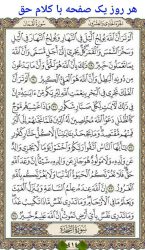 هر روز یک صفحه با کلام حق
الجزء الحادي والعشرون سورة لقمان
أَلَمْ تَرَ أَنَّ اللَّهَ يُولِجُ اللَّيْلَ فِي النَّهَارِ وَيُولِجُ النَّهَارَ فِي اللَّيْلِ
وَسَخَّرَ الشَّمْسَ وَالْقَمَرَ كُلٌّ يَجْرِي إِلَىٰ أَجَلٍ مُسَمًّى وَأَنَّ اللَّهَ
بِمَا تَعْمَلُونَ خَبِيرٌ ٢٩ ذَٰلِكَ بِأَنَّ اللَّهَ هُوَ الْحَقُّ وَأَنَّ مَا يَدْعُونَ
مِنْ دُونِهِ الْبَاطِلُ وَأَنَّ اللَّهَ هُوَ الْعَلِيُّ الْكَبِيرُ ٣٠ أَلَمْ تَرَ
أَنَّ الْفُلْكَ تَجْرِي فِي الْبَحْرِ بِنِعْمَتِ اللَّهِ لِيُرِيَكُمْ مِنْ آيَاتِهِ
إِنَّ فِي ذَٰلِكَ لَآيَاتٍ لِكُلِّ صَبَّارٍ شَكُورٍ ٣١ وَإِذَا غَشِيَهُمْ
مَوْجٌ كَالظُّلَلِ دَعَوُا اللَّهَ مُخْلِصِينَ لَهُ الدِّينَ فَلَمَّا نَجَّاهُمْ
إِلَى الْبَرِّ فَمِنْهُمْ مُقْتَصِدٌ وَمَا يَجْحَدُ بِآيَاتِنَا إِلَّا كُلُّ خَتَّارٍ
كَفُورٍ ٣٢ يَا أَيُّهَا النَّاسُ اتَّقُوا رَبَّكُمْ وَاخْشَوْا يَوْمًا لَا يَجْزِي
وَالِدٌ عَنْ وَلَدِهِ وَلَا مَوْلُودٌ هُوَ جَازٍ عَنْ وَالِدِهِ شَيْئًا إِنَّ
وَعْدَ اللَّهِ حَقٌّ فَلَا تَغُرَّنَّكُمُ الْحَيَاةُ الدُّنْيَا وَلَا يَغُرَّنَّكُمْ بِاللَّهِ
الْغَرُورُ ٣٣ إِنَّ اللَّهَ عِنْدَهُ عِلْمُ السَّاعَةِ وَيُنَزِّلُ الْغَيْثَ
وَيَعْلَمُ مَا فِي الْأَرْحَامِ وَمَا تَدْرِي نَفْسٌ مَاذَا تَكْسِبُ غَدًا
وَمَا تَدْرِي نَفْسٌ بِأَيِّ أَرْضٍ تَمُوتُ إِنَّ اللَّهَ عَلِيمٌ خَبِيرٌ ٣٤
سورة السجدة
٤١٤